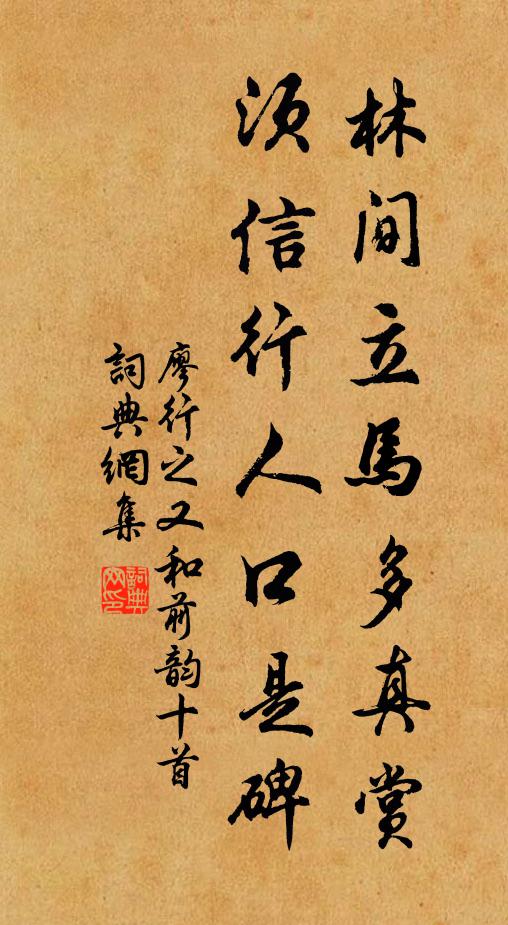 林間立馬多真賞
須信行人口是碑
廖行之又和前韵十首
詞典網集
詞典网印